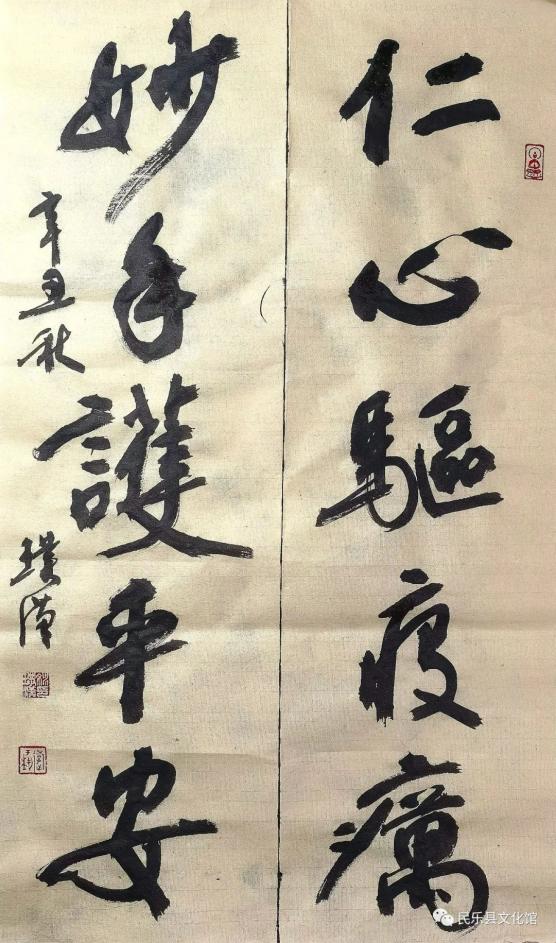 仁心驅疫癘
妙手護平安
辛丑秋
璞漢
民乐县文化馆